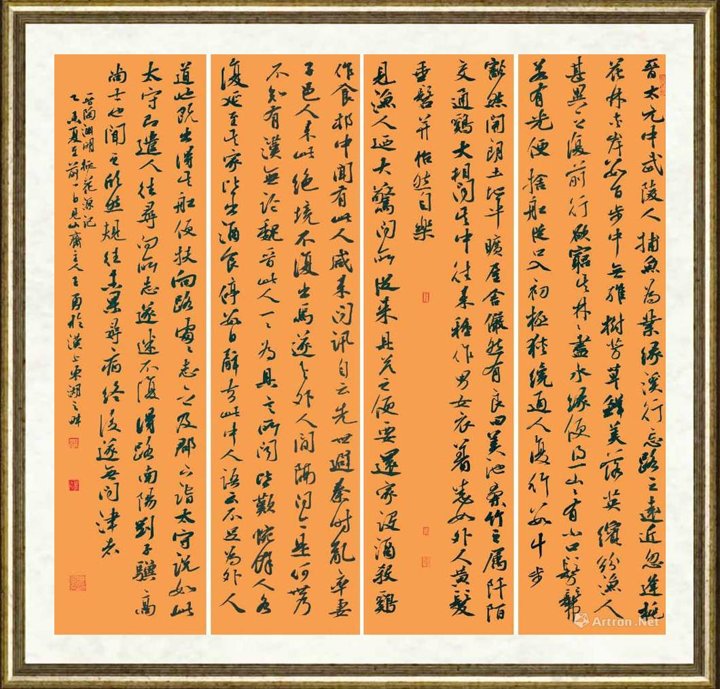 晉太元中武陵人捕魚為業緣溪行忘路之遠近忽逢桃
花林夾岸數百步中無雜樹芳草鮮美落英繽紛漁人
甚異之復前行欲窮其林林盡水源便得一山山有小口髣髴
若有光便捨船從口入初極狹纔通人復行數十步
豁然開朗土地平曠屋舍儼然有良田美池桑竹之屬阡陌
交通鷄犬相聞其中往來種作男女衣著悉如外人黃髮
垂髫並怡然自樂
見漁人乃大驚問所從來具答之便要還家設酒殺鷄
作食村中聞有此人咸來問訊自云先世避秦時亂率妻
子邑人來此絕境不復出焉遂與外人間隔問今是何世乃
不知有漢無論魏晉此人一一為具言所聞皆歎惋餘人各
復延至其家皆出酒食停數日辭去此中人語云不足為外人
道也既出得其船便扶向路處處志之及郡下詣太守說如此
太守即遣人往尋向所志遂迷不復得路南陽劉子驥高
尚士也聞之欣然規往未果尋病終後遂無問津者
晉陶淵明桃花源記
乙未夏至前一日見山齋主人王勇於漢上東湖之畔
Artron.Net